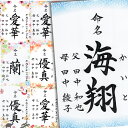 命名
海翔
かいと
父 田中和也
母 田中綾子
愛華
愛華
蘭
優真
優真
愛華